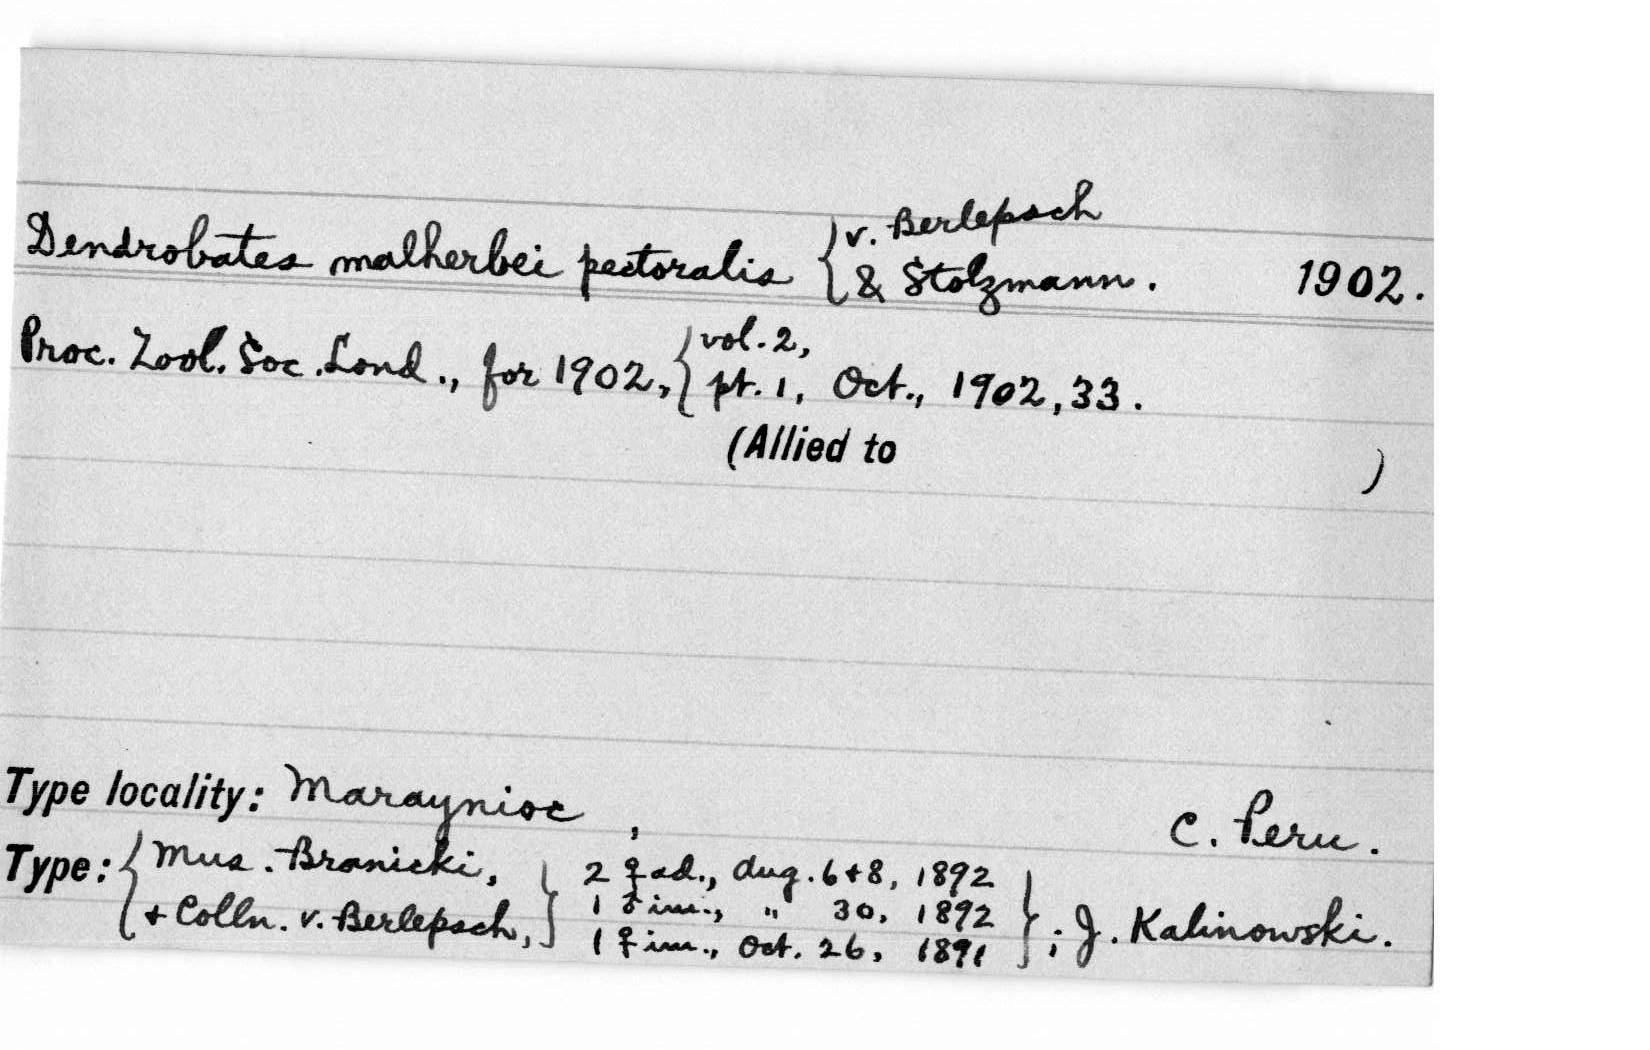 Dendrobates malherbei pectoralis { v. Berlepsch
& Stolzmann. 1902.
Proc. Zool. Soc. Lond., for 1902, { vol. 2,
pt. 1, Oct., 1902, 33.
(Allied to )
Type locality: Maraynioc , C. Peru.
Type: { Mus. Branicki, } 2 ♀ ad., Aug. 6+8, 1892 }
1 ♂ im., " 30, 1892
+ Colln. v. Berlepsch, ; J. Kalinowski.
1 ♀ im., Oct. 26, 1891